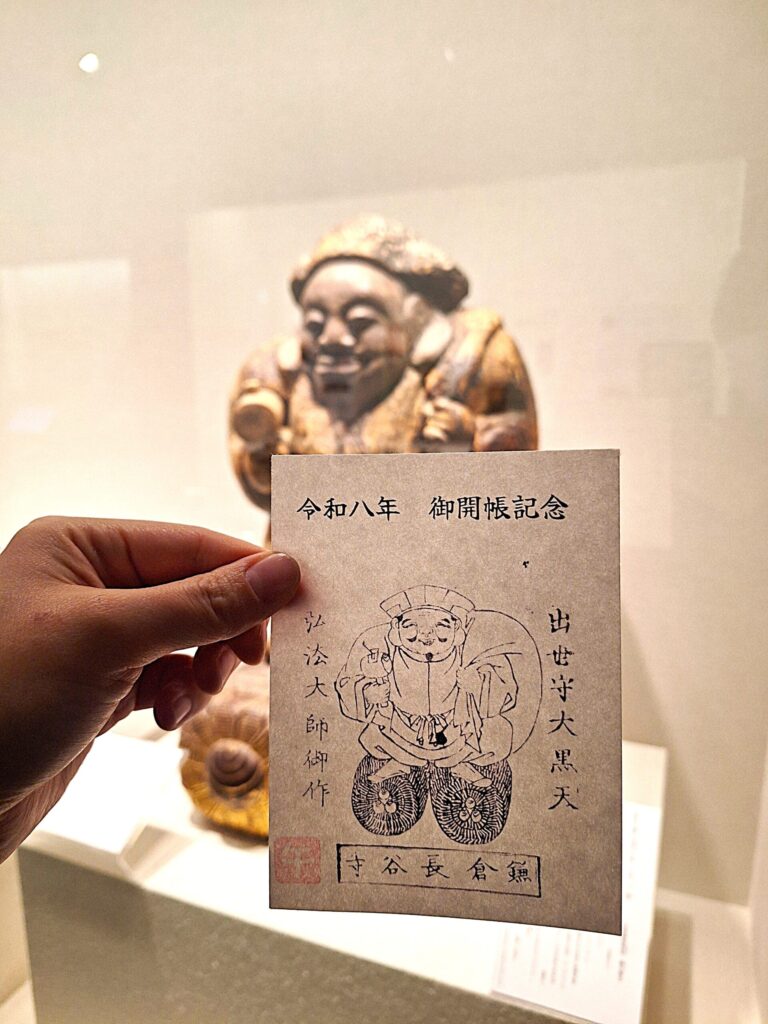 令和八年　御開帳記念
出世守大黒天
弘法大師御作
鎌倉長谷寺